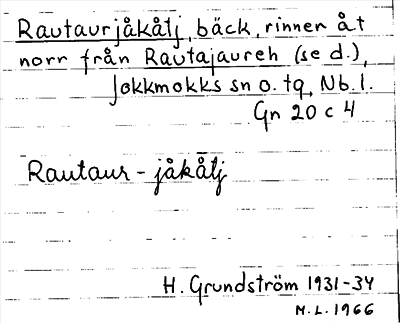 Rautaurjåkåtj, bäck, rinner åt
norr från Rautajaureh (se d.),
Jokkmokks sn o. tg, Nb. l.
Gn 20 c 4
Rautaur - jåkåtj
H. Grundström 1931-34
M.L. 1966